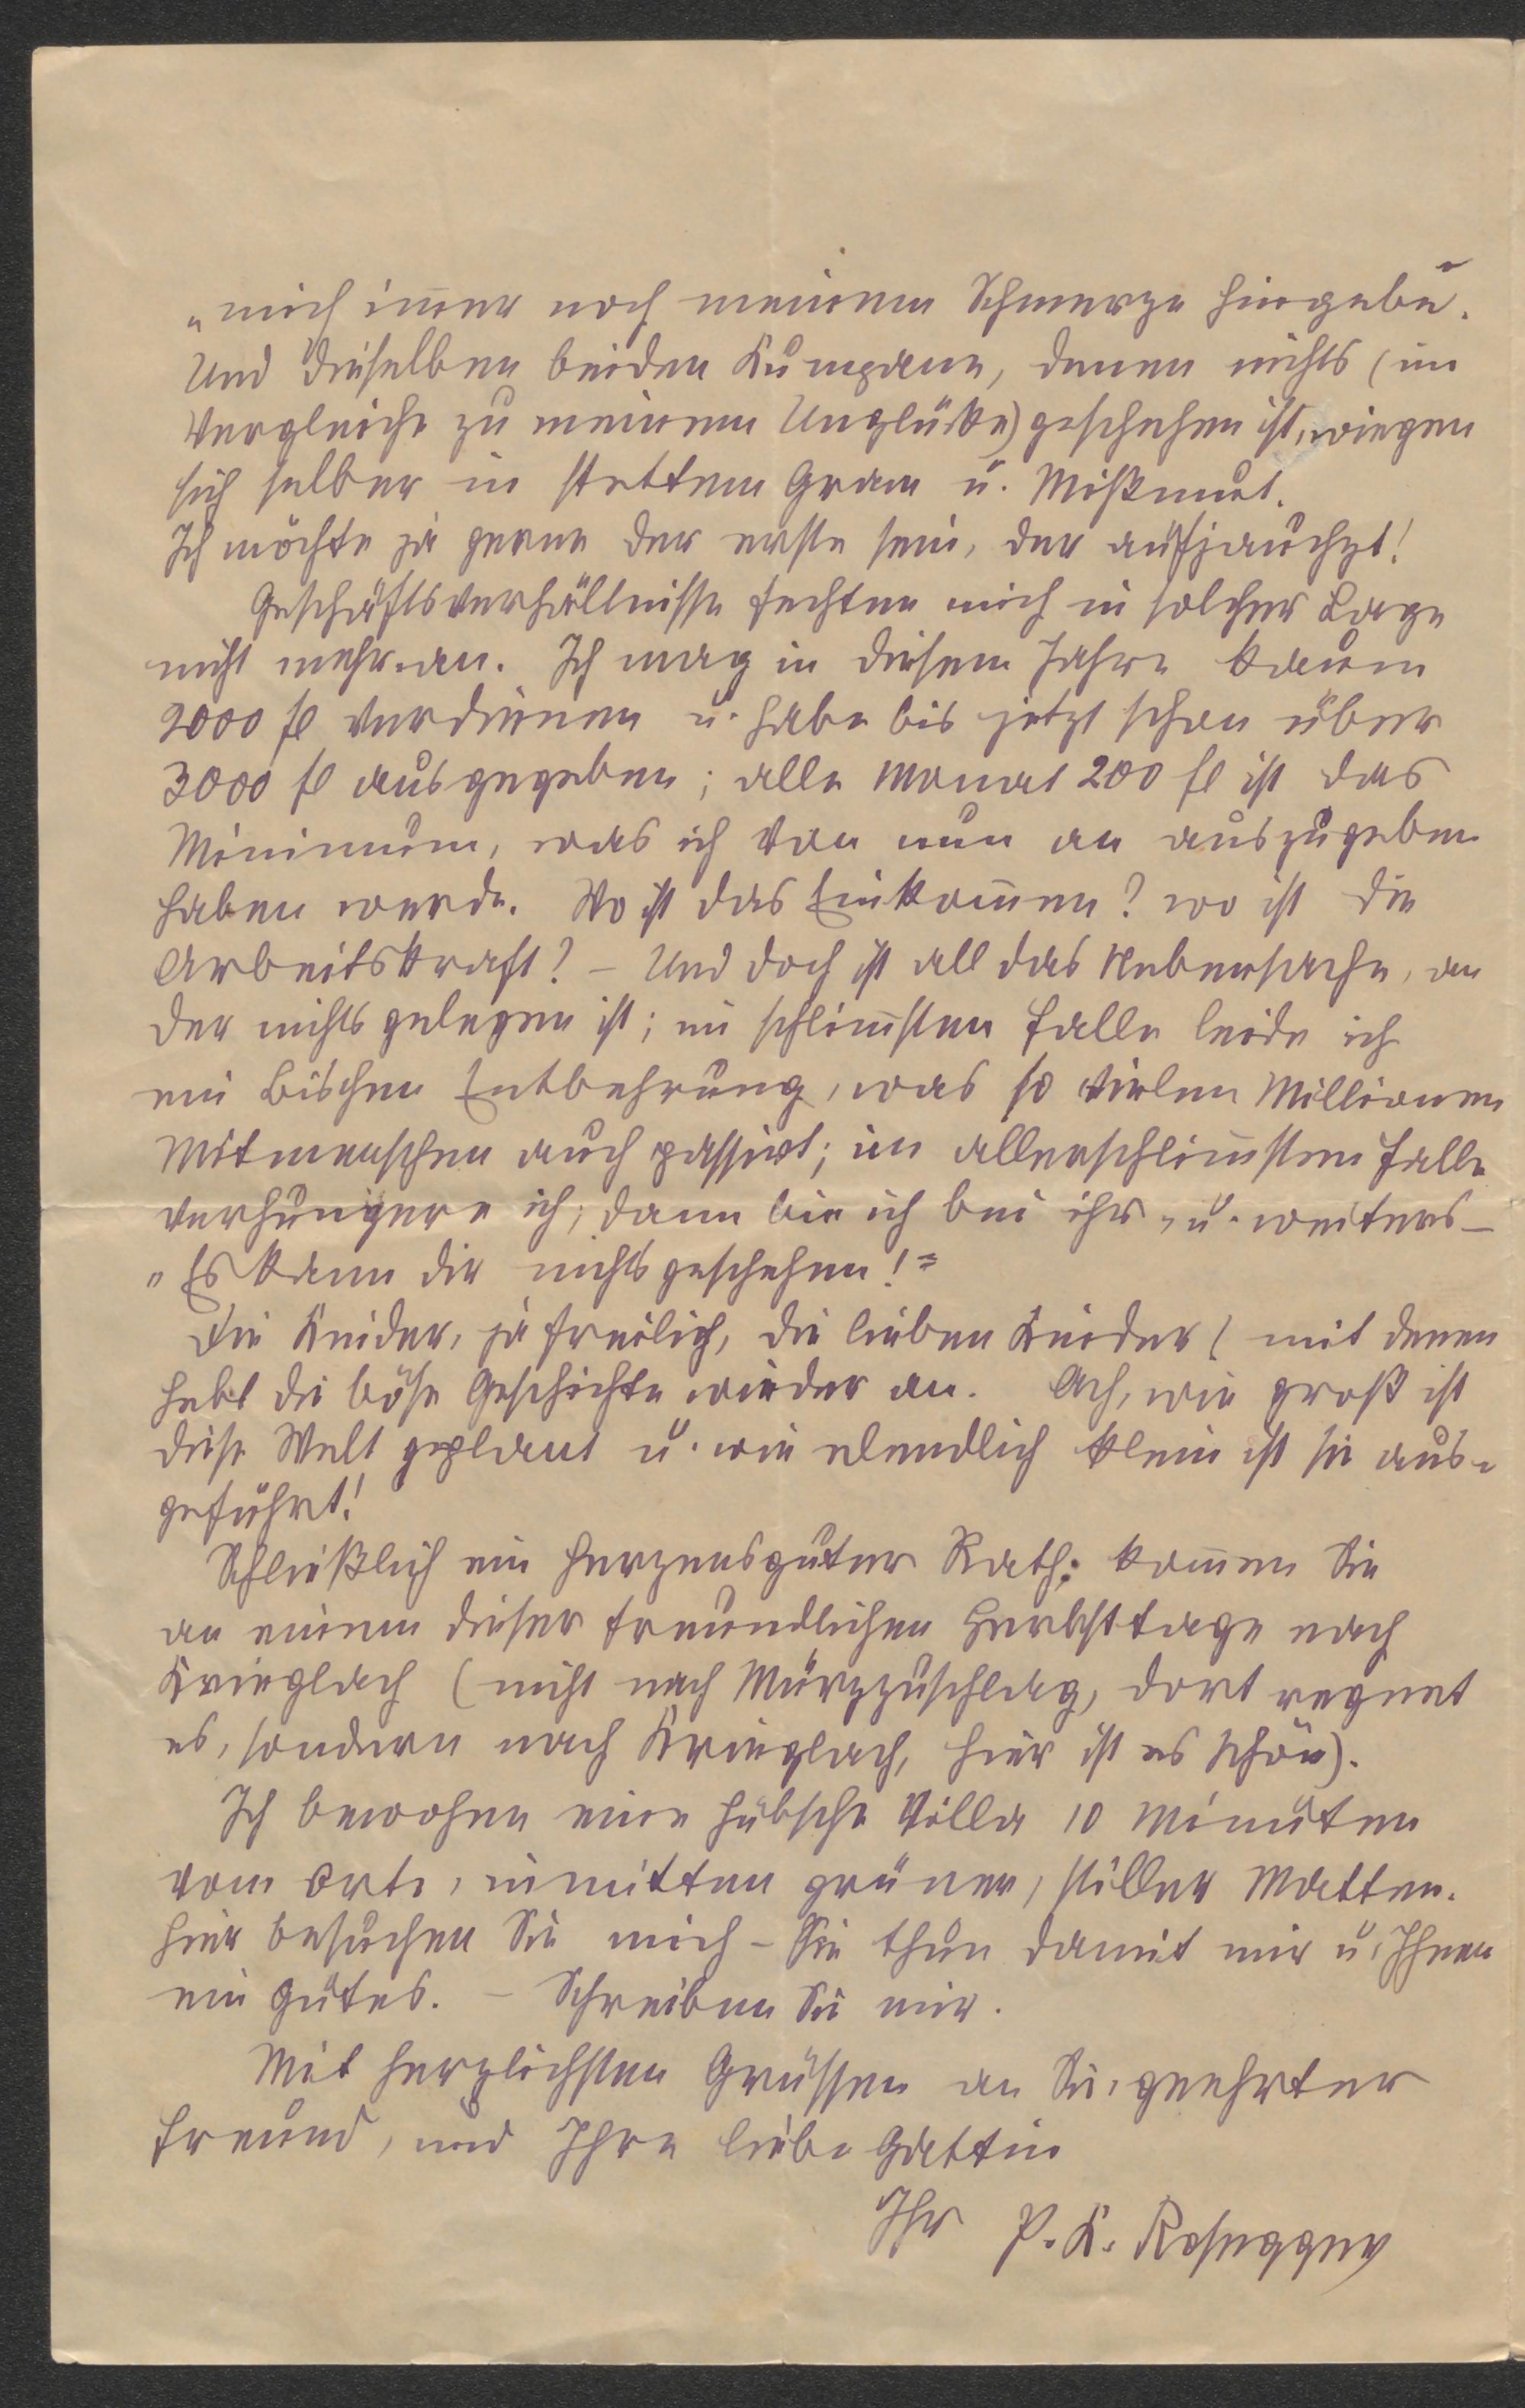 „mich im̅er noch meinem Schmerze hingebe“.
Und dieselben beiden Kumpane, denen nichts (im
Vergleiche zu meinem Unglücke) geschehen ist, wiegen
sich selber in stettem Gram u. Mißmut.
Ich möchte ja gerne der erste sein, der aufjauchzt!
Geschäftsverhältnisse fechten mich in solcher Lage
nicht mehr an. Ich mag in diesem Jahre kaum
2000 fl verdienen u. habe bis jetzt schon über
3000 fl ausgegeben; alle Monat 200 fl ist das
Minimum, was ich von nun an auszugeben
haben werde. Wo ist das Einkom̅en? wo ist die
Arbeitskraft? – Und doch ist all das Nebensache, an
der nichts gelegen ist; im schlim̅sten Falle leide ich
ein Bischen Entbehrung, was so vielen Millionen
Mitmenschen auch passirt; im allerschlim̅sten Falle
verhungere ich, dann bin ich bei ihr, u. weiters –
„Es kann dir nichts geschehen!“
Die Kinder, ja freilich, die lieben Kinder! mit denen
hebt die böse Geschichte wieder an. Ach, wie groß ist
diese Welt geplant u. wie elendlich klein ist sie aus-
geführt!
Schließlich ein herzensguter Rath: kom̅en Sie
an einem dieser freundlichen Herbsttage nach
Krieglach (nicht nach Mürzzuschlag, dort regnet
es, sondern nach Krieglach, hier ist es schön).
Ich bewohne eine hübsche Villa 10 Minuten
vom Orte, inmitten grüner, stiller Matten.
Hier besuchen Sie mich – Sie thun damit mir u. Ihnen
ein Gutes. – Schreiben Sie mir.
Mit herzlichsten Grüssen an Sie, geehrter
Freund, und Ihre liebe Gattin
Ihr P. K. Rosegger